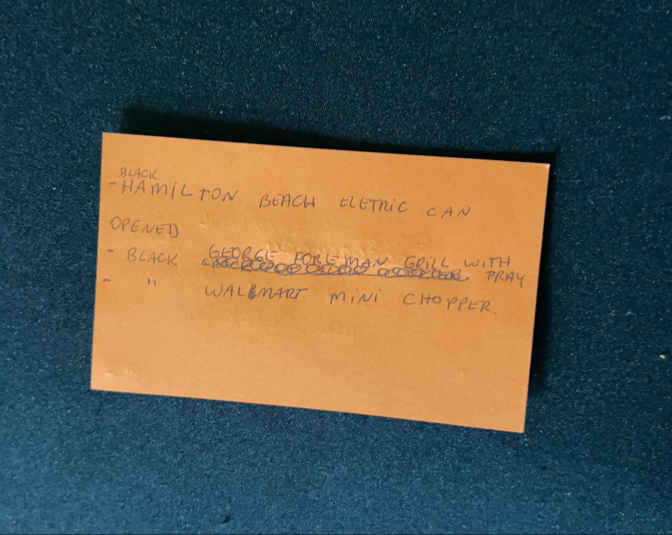 BLACK
- HAMILTON BEACH ELETRIC CAN
OPENED
- BLACK GEORGE FOREMAN GRILL WITH
PRAY
- " WALMART MINI CHOPPER